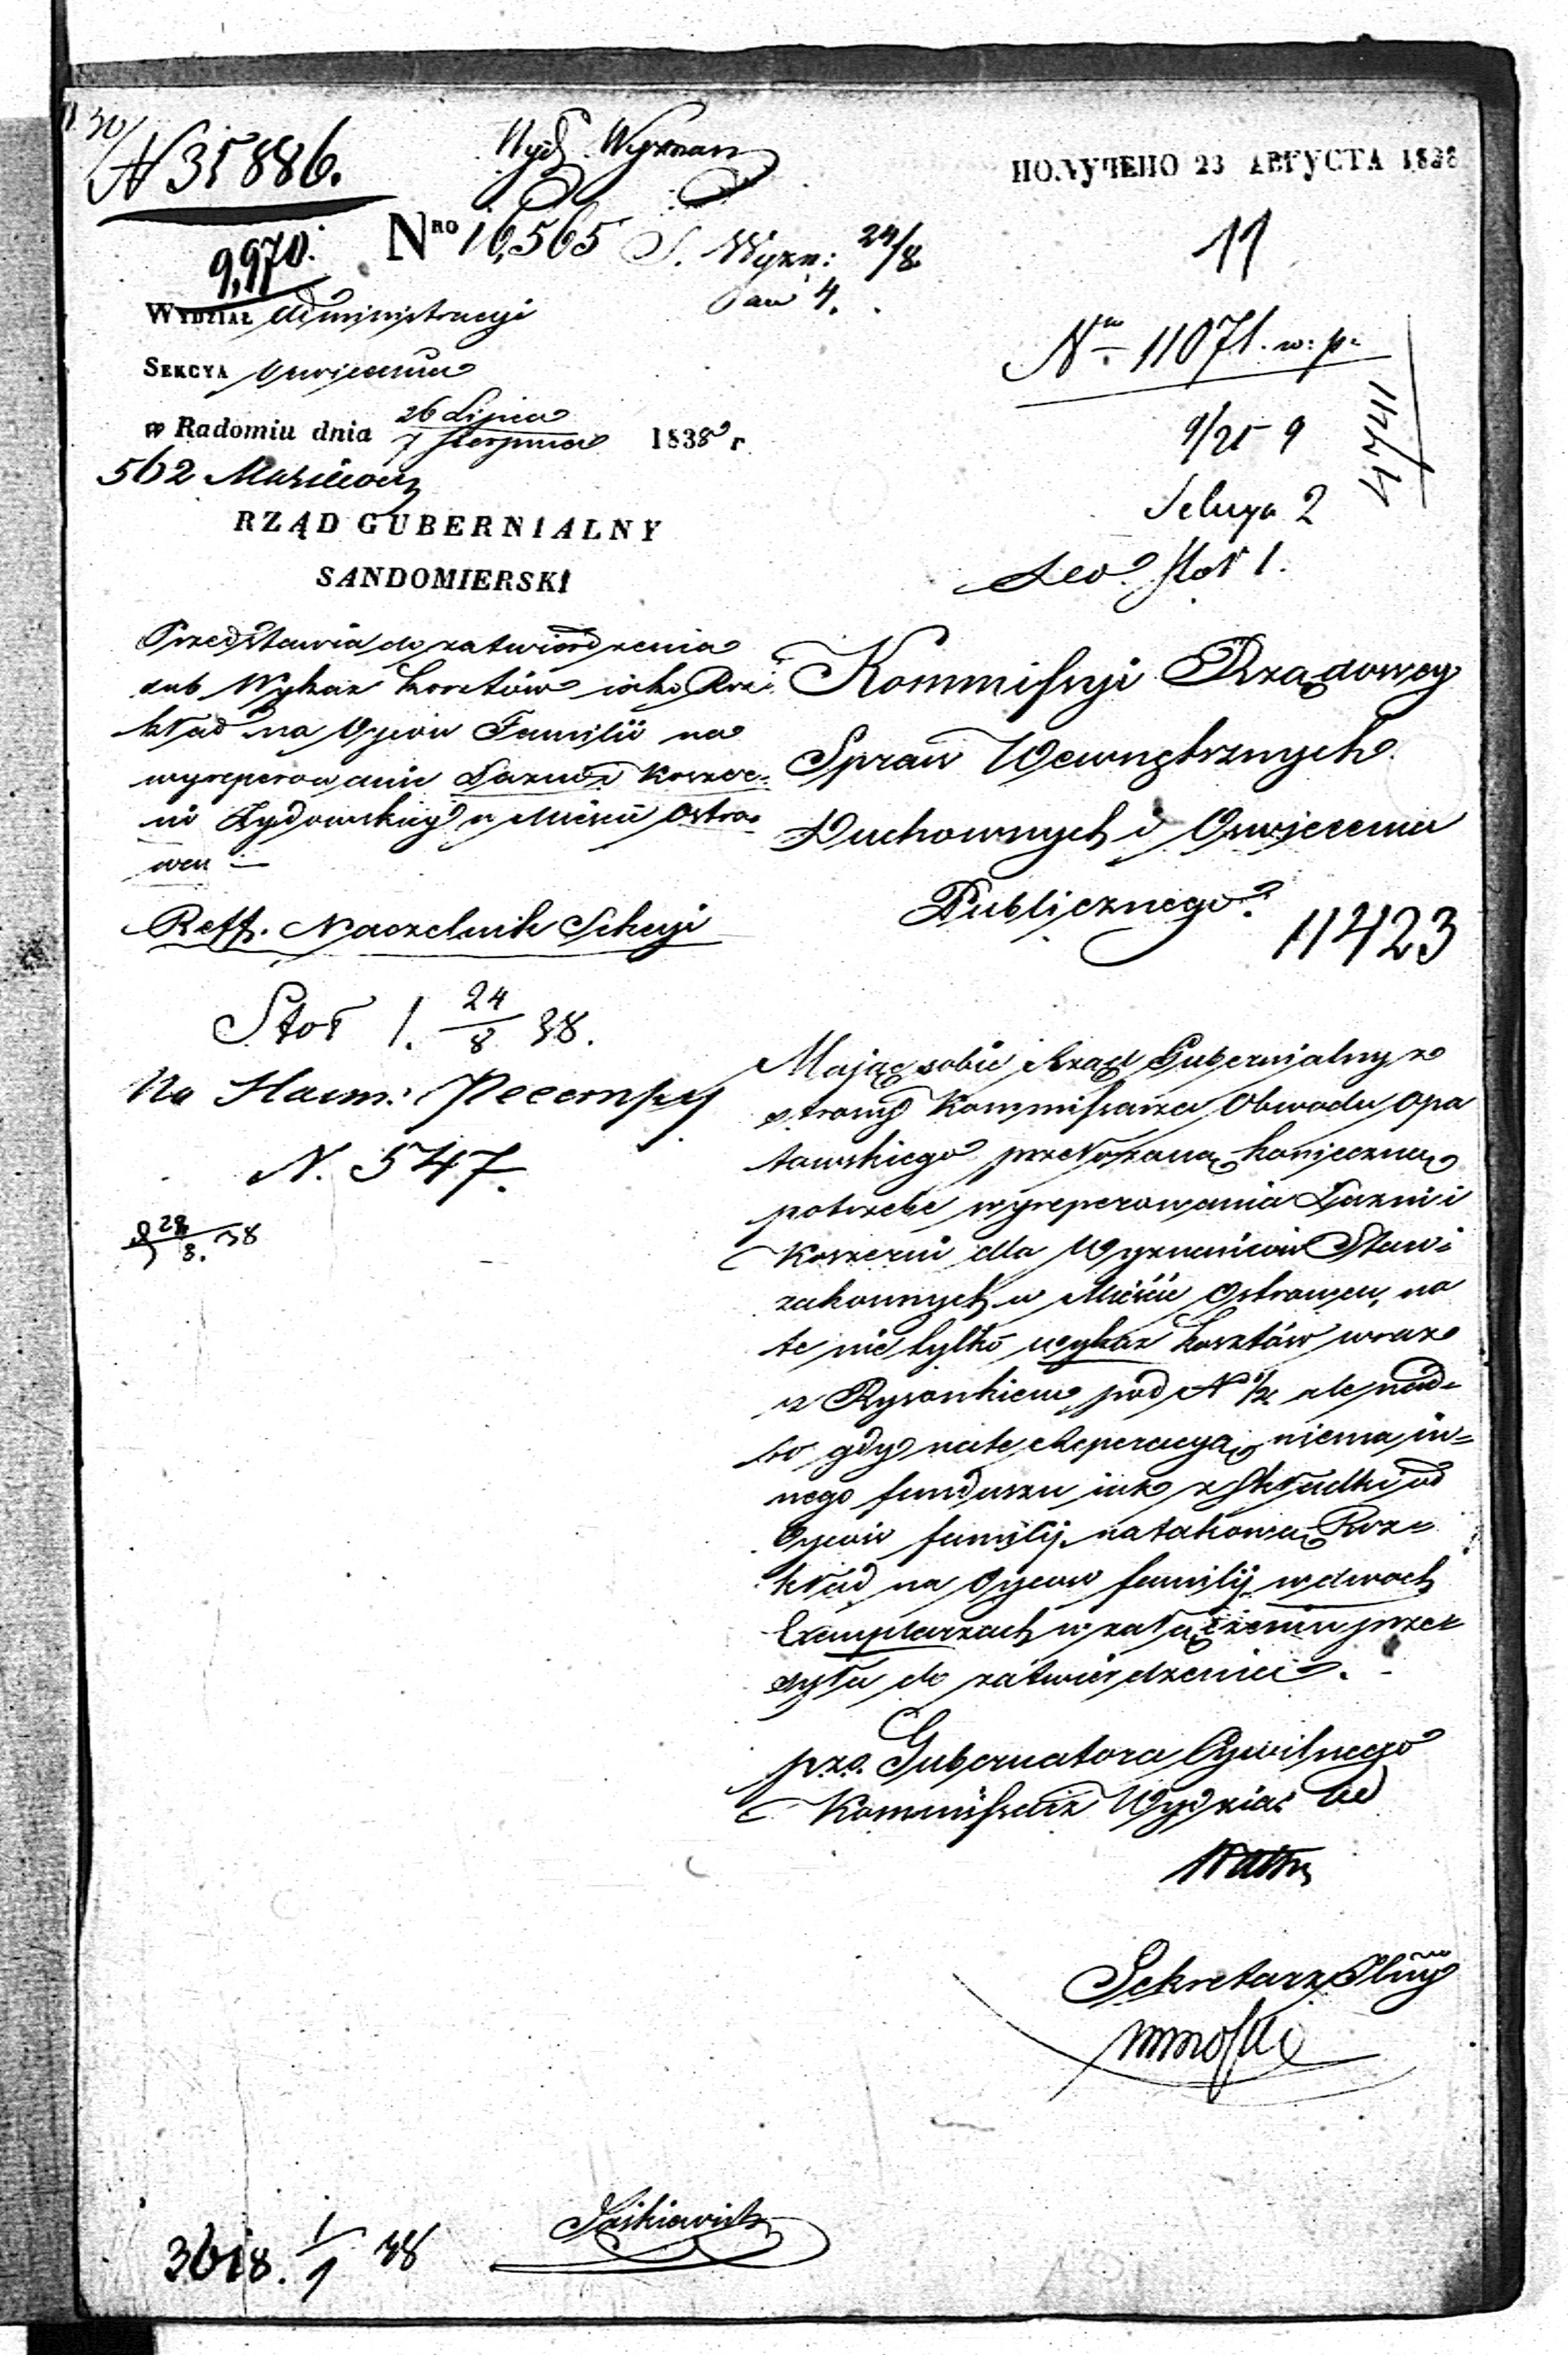 N 35886.
Wydz. Wyznań
ПОЛУЧЕНО 23 АВГУСТА 1838
9,970.
NRO 16,565 S. Wyzn: 24/8
11
WYDZIAŁ Administracyi
4.
No 11071. w: p.
SEKCYA
11741
w Radomiu dnia 26 Lipca / 7 Sierpnia 1838 r
9/25 9
562
Sekcya 2
RZĄD GUBERNIALNY
SANDOMIERSKI
Stół 1.
Przedstawia do zatwierdzenia
Wykaz kosztów Roz:
kład na Oycow Familii na
wyreperowanie Łazni i Koszer-
ni Żydowskiej w Mieście Ostro-
wcu
Reff. Naczelnik Sekcyi
Stół 1. 24/8 38.
N. 547.
28/8. 38
Kommissyi Rządowey
Spraw Wewnętrznych
Duchownych i Oswiecenia
Publicznego.
11423
Mając sobie Rząd Gubernialny ze
strony Kommissarza Obwodu Opa
towskiego przełożoną konieczną
potrzebę wyreperowania Łazni i
Koszerni dla Wyznawców Staro:
zakonnych w Mieście Ostrowcu, na
te nie tylko wykaz kosztów wraz
z Rysunkiem pod N 1/2 ale nad-
to gdy na te Reperacyą niema in-
nego funduszu jak z Składki od
Oycow familij na takową Roz-
kład na Oycow familij w dwoch
Exemplarzach w załączeniu prze
syła do zatwierdzenia.
przo. Gubernatora Cywilnego
Kommissarz Wydział
Sekretarz Jlny
3618. 1/1 38